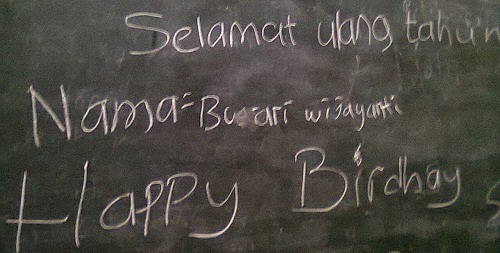 Selamat ulang tahun
Nama = wijayanti
Happy Birdhay